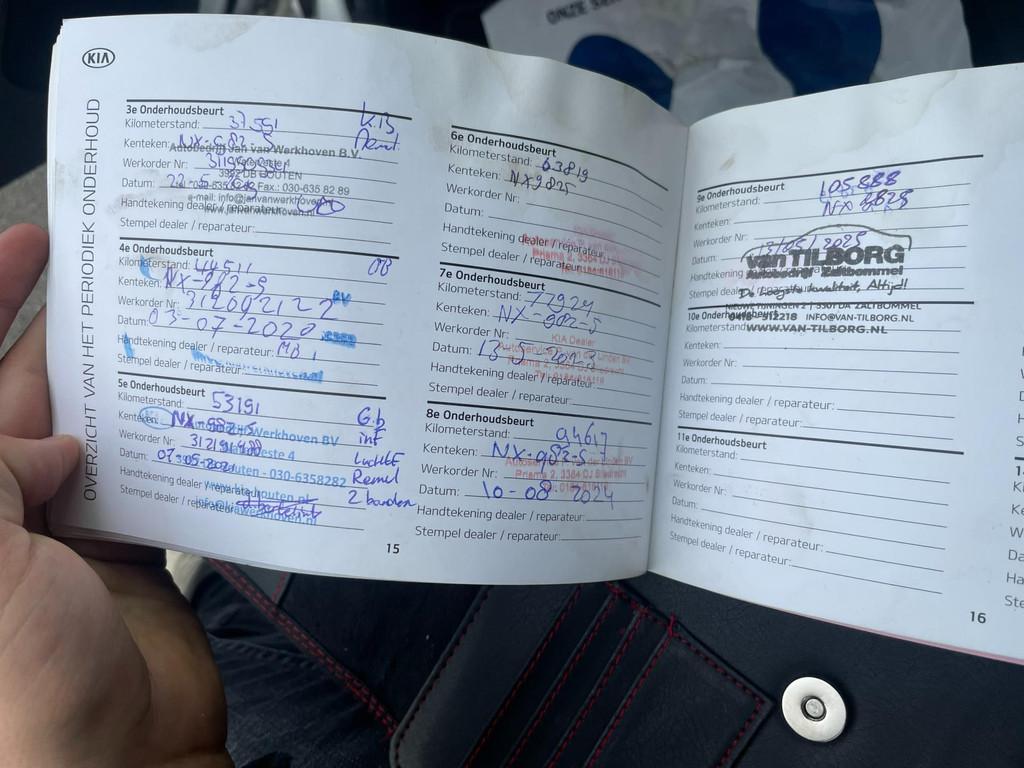 ONZE
KIA
OVERZICHT VAN HET PERIODIEK ONDERHOUD
3e Onderhoudsbeurt
Kilometerstand: 37551
Kenteken: NX-982-S
Autobedrijf Jan van Werkhoven B.V.
Werkorder Nr:
3992 DB HOUTEN
Datum: 22-5
Fax.: 030-635 82 89
e-mail: info@janvanwerkhoven.nl
Handtekening dealer / reparateur:
Stempel dealer / reparateur:
4e Onderhoudsbeurt
Kilometerstand: 44511
Kenteken: NX-982-S
Werkorder Nr: 312002122
Datum: 03-07-2020
Handtekening dealer / reparateur: MB
Stempel dealer / reparateur:
5e Onderhoudsbeurt
Kilometerstand: 53191
G.b
Kenteken: NX-982-S
Werkhoven BV
inf
Werkorder Nr:
LuchtF
Datum: 07-05-2021
Houten - 030-6358282
Remvl
Handtekening dealer / reparateur:
2 banden
Stempel dealer / reparateur:
info@kiawerkhoven.nl
15
6e Onderhoudsbeurt
Kilometerstand: 63819
Kenteken: NX982S
Werkorder Nr:
Datum:
Handtekening dealer / reparateur:
Stempel dealer / reparateur:
7e Onderhoudsbeurt
Kilometerstand: 77924
Kenteken: NX-982-S
Werkorder Nr:
KIA Dealer
Datum: 15-5-2023
Prisma 2, 3364 DJ Sliedrecht
Handtekening dealer / reparateur:
Stempel dealer / reparateur:
8e Onderhoudsbeurt
Kilometerstand: 94617
Kenteken: NX-982-S
Werkorder Nr:
Prisma 2, 3364 DJ Sliedrecht
Datum: 10-08-2024
Handtekening dealer / reparateur:
Stempel dealer / reparateur:
9e Onderhoudsbeurt
Kilometerstand: 105888
Kenteken: NX 982S
Werkorder Nr:
Datum: 13/05/2025
van TILBORG
Handtekening
Autobedrijf Zaltbommel
Stempel
De hoogste kwaliteit, Altijd!
ZALTBOMMEL
10e Onderhoudsbeurt
0418-512218 INFO@VAN-TILBORG.NL
Kilometerstand:
WWW.VAN-TILBORG.NL
Kenteken:
Werkorder Nr:
Datum:
Handtekening dealer / reparateur:
Stempel dealer / reparateur:
11e Onderhoudsbeurt
Kilometerstand:
Kenteken:
Werkorder Nr:
Datum:
Handtekening dealer / reparateur:
Stempel dealer / reparateur:
16